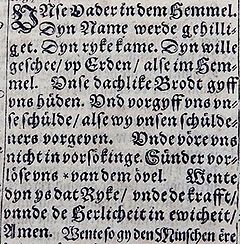 VNse Vader in dem Hemmel.
Dyn Name werde gehilli-
get. Dyn ryke kame. Dyn wille
geschee/ vp Erden/ alse im Hem-
mel. Vnse dachlike Brodt gyff
vns hüden. Vnd vorgyff vns vn-
se schülde/ alse wy vnsen schülde-
ners vorgeven. Vnde vöre vns
nicht in vorsökinge. Sünder vor-
löse vns * van dem övel. Wente
dyn ys dat Ryke/ vnde de krafft/
vnnde de Herlicheit in ewicheit/
Amen. Wente so gy den Minschen ere